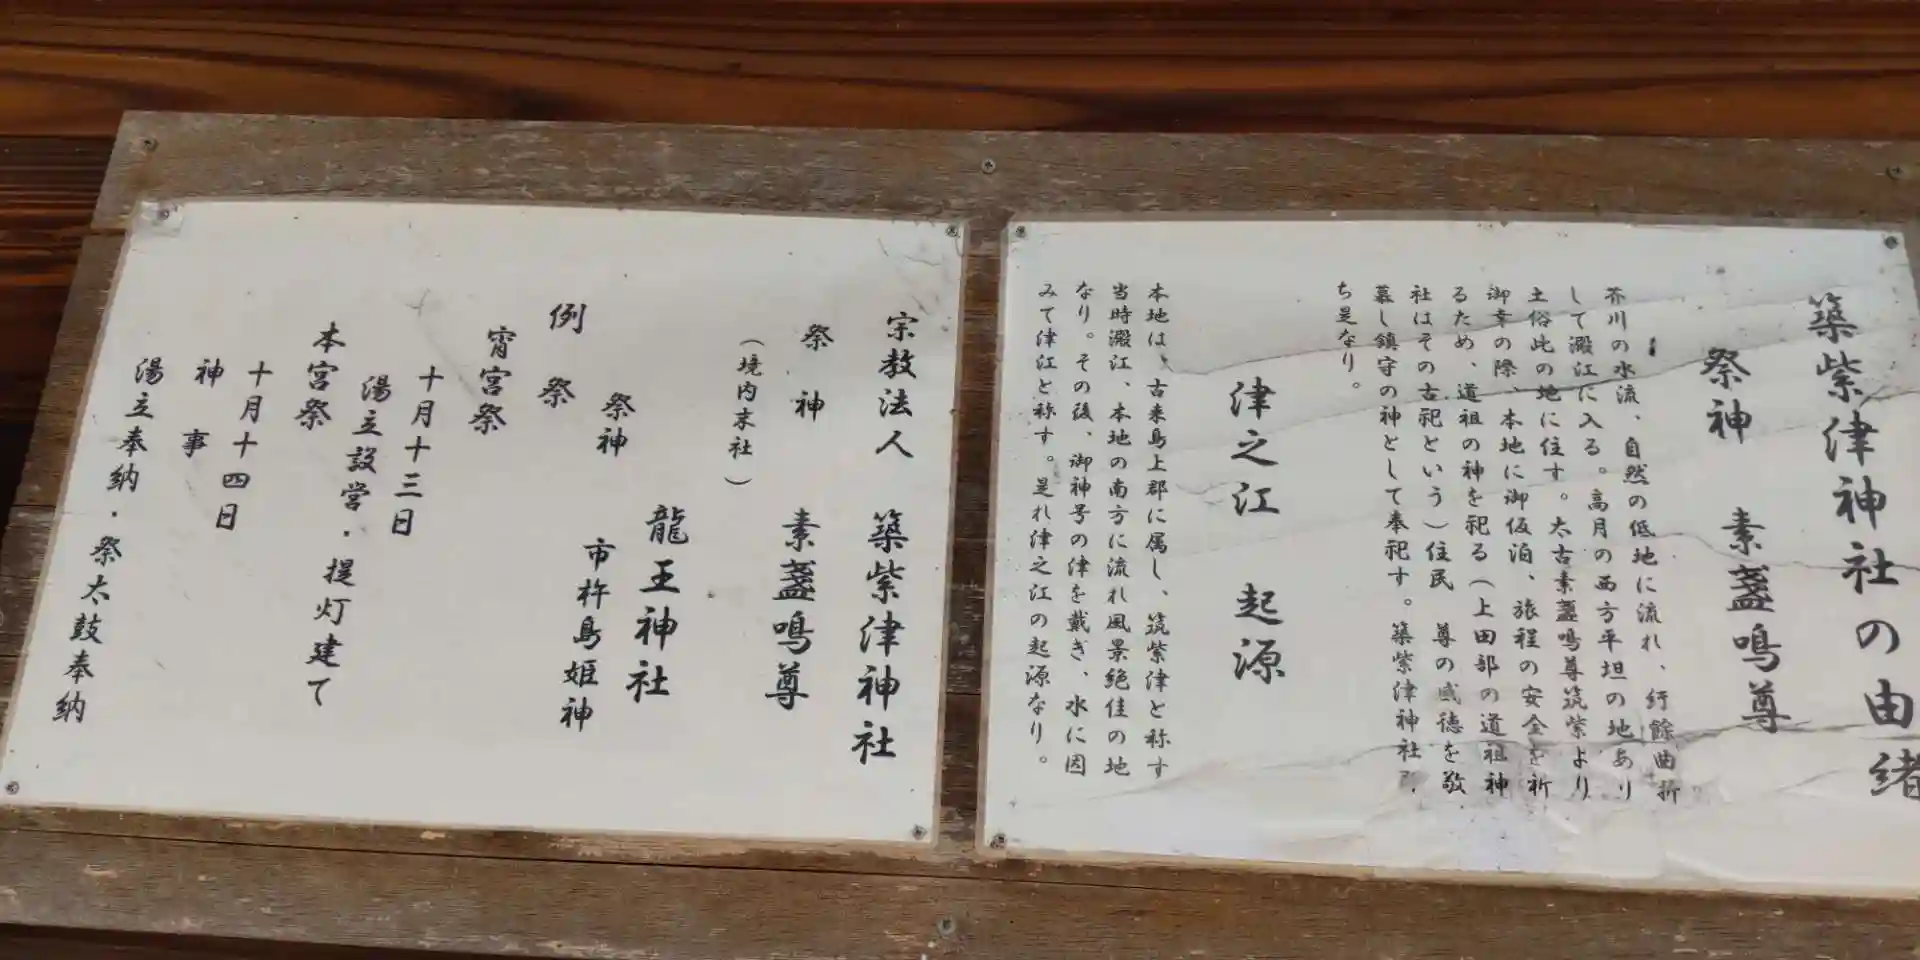 築紫津神社の由緒
祭神 素盞鳴尊
芥川の水流、自然の低地に流れ、紆餘曲折
して澱江に入る。高月の西方平坦の地あり
土俗此の地に住す。太古素盞鳴尊筑紫より
御幸の際、本地に御仮泊、旅程の安全を祈
るため、道祖の神を祀る(上田部の道祖神
社はその古祀という)住民 尊の威徳を敬
慕し鎮守の神として奉祀す。築紫津神社
ち是なり。
津之江 起源
本地は、古来島上郡に属し、筑紫津と称す
当時澱江、本地の南方に流れ風景絶佳の地
なり。その後、御神号の津を戴ぎ、水に因
みて津江と称す。是れ津之江の起源なり。
宗教法人 築紫津神社
祭神 素盞鳴尊
(境内末社)
龍王神社
祭神 市杵島姫神
例祭
宵宮祭
十月十三日
湯立設営・提灯建て
本宮祭
十月十四日
神事
湯立奉納・祭太鼓奉納